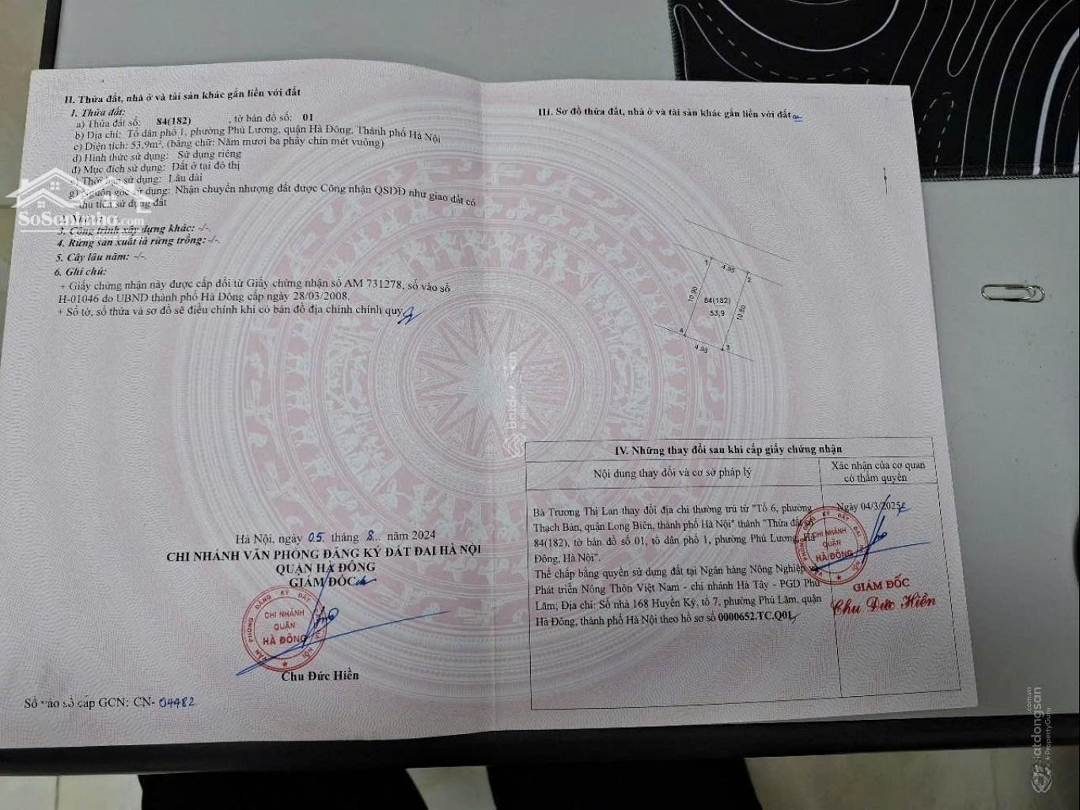 II. Thửa đất, nhà ở và tài sản khác gắn liền với đất
1. Thửa đất:
a) Thửa đất số: 84(182) , tờ bản đồ số: 01
b) Địa chỉ: Tổ dân phố 1, phường Phú Lương, quận Hà Đông, Thành phố Hà Nội
c) Diện tích: 53,9m², (bằng chữ: Năm mươi ba phẩy chín mét vuông)
d) Hình thức sử dụng: Sử dụng riêng
đ) Mục đích sử dụng: Đất ở tại đô thị
e) Thời hạn sử dụng: Lâu dài
g) Nguồn gốc sử dụng: Nhận chuyển nhượng đất được Công nhận QSDĐ như giao đất có
thu tiền sử dụng đất
SoSenNha.com
3. Công trình xây dựng khác: -/-.
4. Rừng sản xuất là rừng trồng: -/-.
5. Cây lâu năm: -/-.
6. Ghi chú:
+ Giấy chứng nhận này được cấp đổi từ Giấy chứng nhận số AM 731278, số vào sổ
H-01046 do UBND thành phố Hà Đông cấp ngày 28/03/2008.
+ Số tờ, số thửa và sơ đồ sẽ điều chỉnh khi có bản đồ địa chính chính quy
Hà Nội, ngày 05 tháng 8 năm 2024
CHI NHÁNH VĂN PHÒNG ĐĂNG KÝ ĐẤT ĐAI HÀ NỘI
QUẬN HÀ ĐÔNG
GIÁM ĐỐC
VĂN PHÒNG ĐĂNG KÝ ĐẤT
CHI NHÁNH
QUẬN
HÀ ĐÔNG
Chu Đức Hiền
Số vào sổ cấp GCN: CN- 04482
III. Sơ đồ thửa đất, nhà ở và tài sản khác gắn liền với đất
1
4.95
2
10.90
84(182)
53,9
10.90
4
4.95
3
Batdongsan
IV. Những thay đổi sau khi cấp giấy chứng nhận
Nội dung thay đổi và cơ sở pháp lý
Xác nhận của cơ quan
có thẩm quyền
Bà Trương Thị Lan thay đổi địa chỉ thường trú từ "Tổ 6, phường
Thạch Bàn, quận Long Biên, thành phố Hà Nội" thành "Thửa đất số
84(182), tờ bản đồ số 01, tổ dân phố 1, phường Phú Lương, Hà
Đông, Hà Nội".
Thế chấp bằng quyền sử dụng đất tại Ngân hàng Nông Nghiệp và
Phát triển Nông Thôn Việt Nam - chi nhánh Hà Tây - PGD Phú
Lãm; Địa chỉ: Số nhà 168 Huyền Kỳ, tổ 7, phường Phú Lãm, quận
Hà Đông, thành phố Hà Nội theo hồ sơ số 0000652.TC.Q01
Ngày 04/3/2025
CHI NHÁNH
QUẬN
HÀ ĐÔNG
GIÁM ĐỐC
Chu Đức Hiền
Batdongsan.com.vn
by PropertyGuru